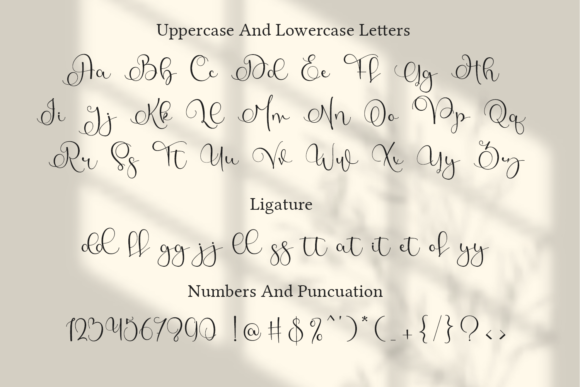 Uppercase And Lowercase Letters
Aa Bb Cc Dd Ee Ff Gg Hh
Ii Jj Kk Ll Mm Nn Oo Pp Qq
Rr Ss Tt Uu Vv Ww Xx Yy Zz
Ligature
dd ff gg jj ll ss tt at it et of yy
Numbers And Puncuation
1234567890 !@#$%^')*(_+{/}?<>